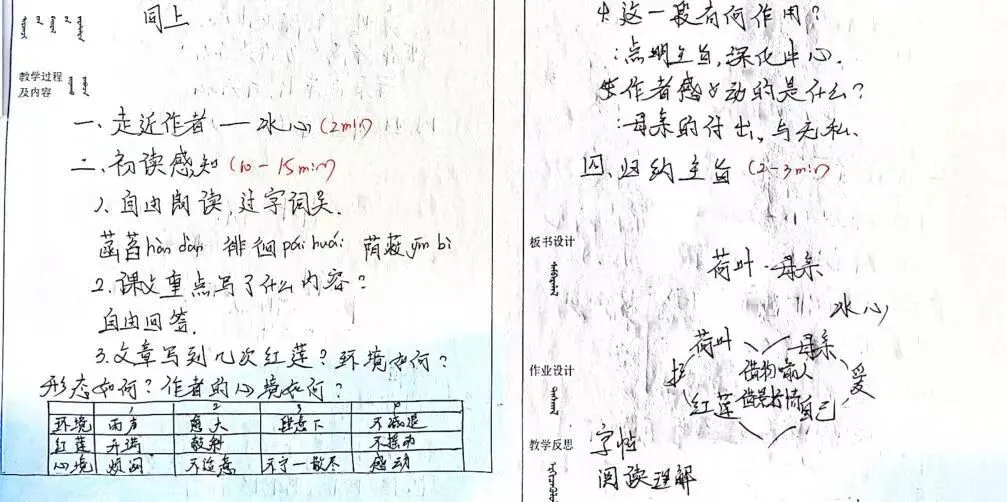 同上
教学过程
及内容
一、走近作者 — 冰心 (2min)
二、初读感知 (10-15min)
1、自由朗读,过字词关.
菡萏hàn dàn 徘徊pái huái 荫蔽yìn bì
2.课文重点写了什么内容?
自由回答.
3.文章写到几次红莲?环境如何?
形态如何?作者的心境如何?
1 2 3 4
环境 雨声 愈大 雨势不减退
红莲 开满 攲斜 不摇动
心境 烦闷 不适意 不宁—散尽 感动
4.这一段有何作用?
:点明主旨,深化中心.
5.作者感动的是什么?
:母亲的付出,与无私.
四、归纳主旨 (2-3min)
板书设计
荷叶·母亲
冰心
荷叶 母亲
护 借物喻人 爱
红莲 借景抒情 自己
作业设计
教学反思
字帖
阅读理解